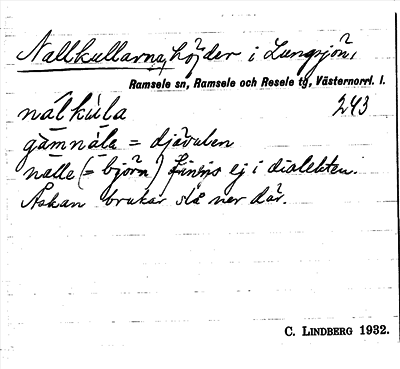 Nallkullarna, höjder i Lungsjön,
Ramsele sn, Ramsele och Resele tg, Västernorrl. l.
nálkùla 243
gámnále = djävulen
nalle (= björn) finns ej i dialekten.
Åskan brukar slå ner där.
C. LINDBERG 1932.